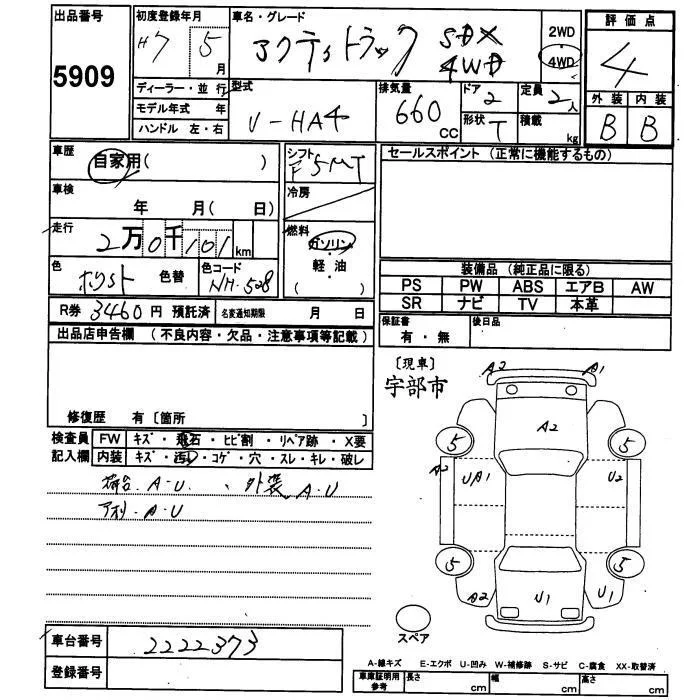 出品番号 初度登録年月 車名・グレード 評価点
5909 H7 5月 アクティトラック SDX 4WD 2WD 4WD 4
ディーラー・並行 型式 排気量 ドア 定員 外装 内装
モデル年式 年 V-HA4 660cc 2 2人 B B
ハンドル 左・右 形状 T 積載 kg
車歴 自家用( ) シフト F5MT セールスポイント (正常に機能するもの)
車検 年 月( 日) 冷房
走行 2万0千101km 燃料 ガソリン・軽油 ( )
色 色替 色コード NH-508 装備品 (純正品に限る)
PS PW ABS エアB AW
SR ナビ TV 本革
R券 3460円 預託済 名変通知期限 月 日 保証書 有・無 後日品
出品店申告欄 (不良内容・欠品・注意事項等記載)
[現車]
宇部市
修復歴 有[箇所 ]
検査員 FW キズ・飛石・ヒビ割・リペア跡・X要
記入欄 内装 キズ・汚レ・コゲ・穴・スレ・キレ・破レ
荷台.A-U ・外装 A-U
アオリ.A-U
A2 A1
A2
5 5
A2 UA1 U2
5 5
A2 U1 U1
スペア
車台番号 2222373
登録番号
A-線キズ E-エクボ U-凹み W-補修跡 S-サビ C-腐食 XX-取替済
車庫証明用参考 長さ cm 幅 cm 高さ cm